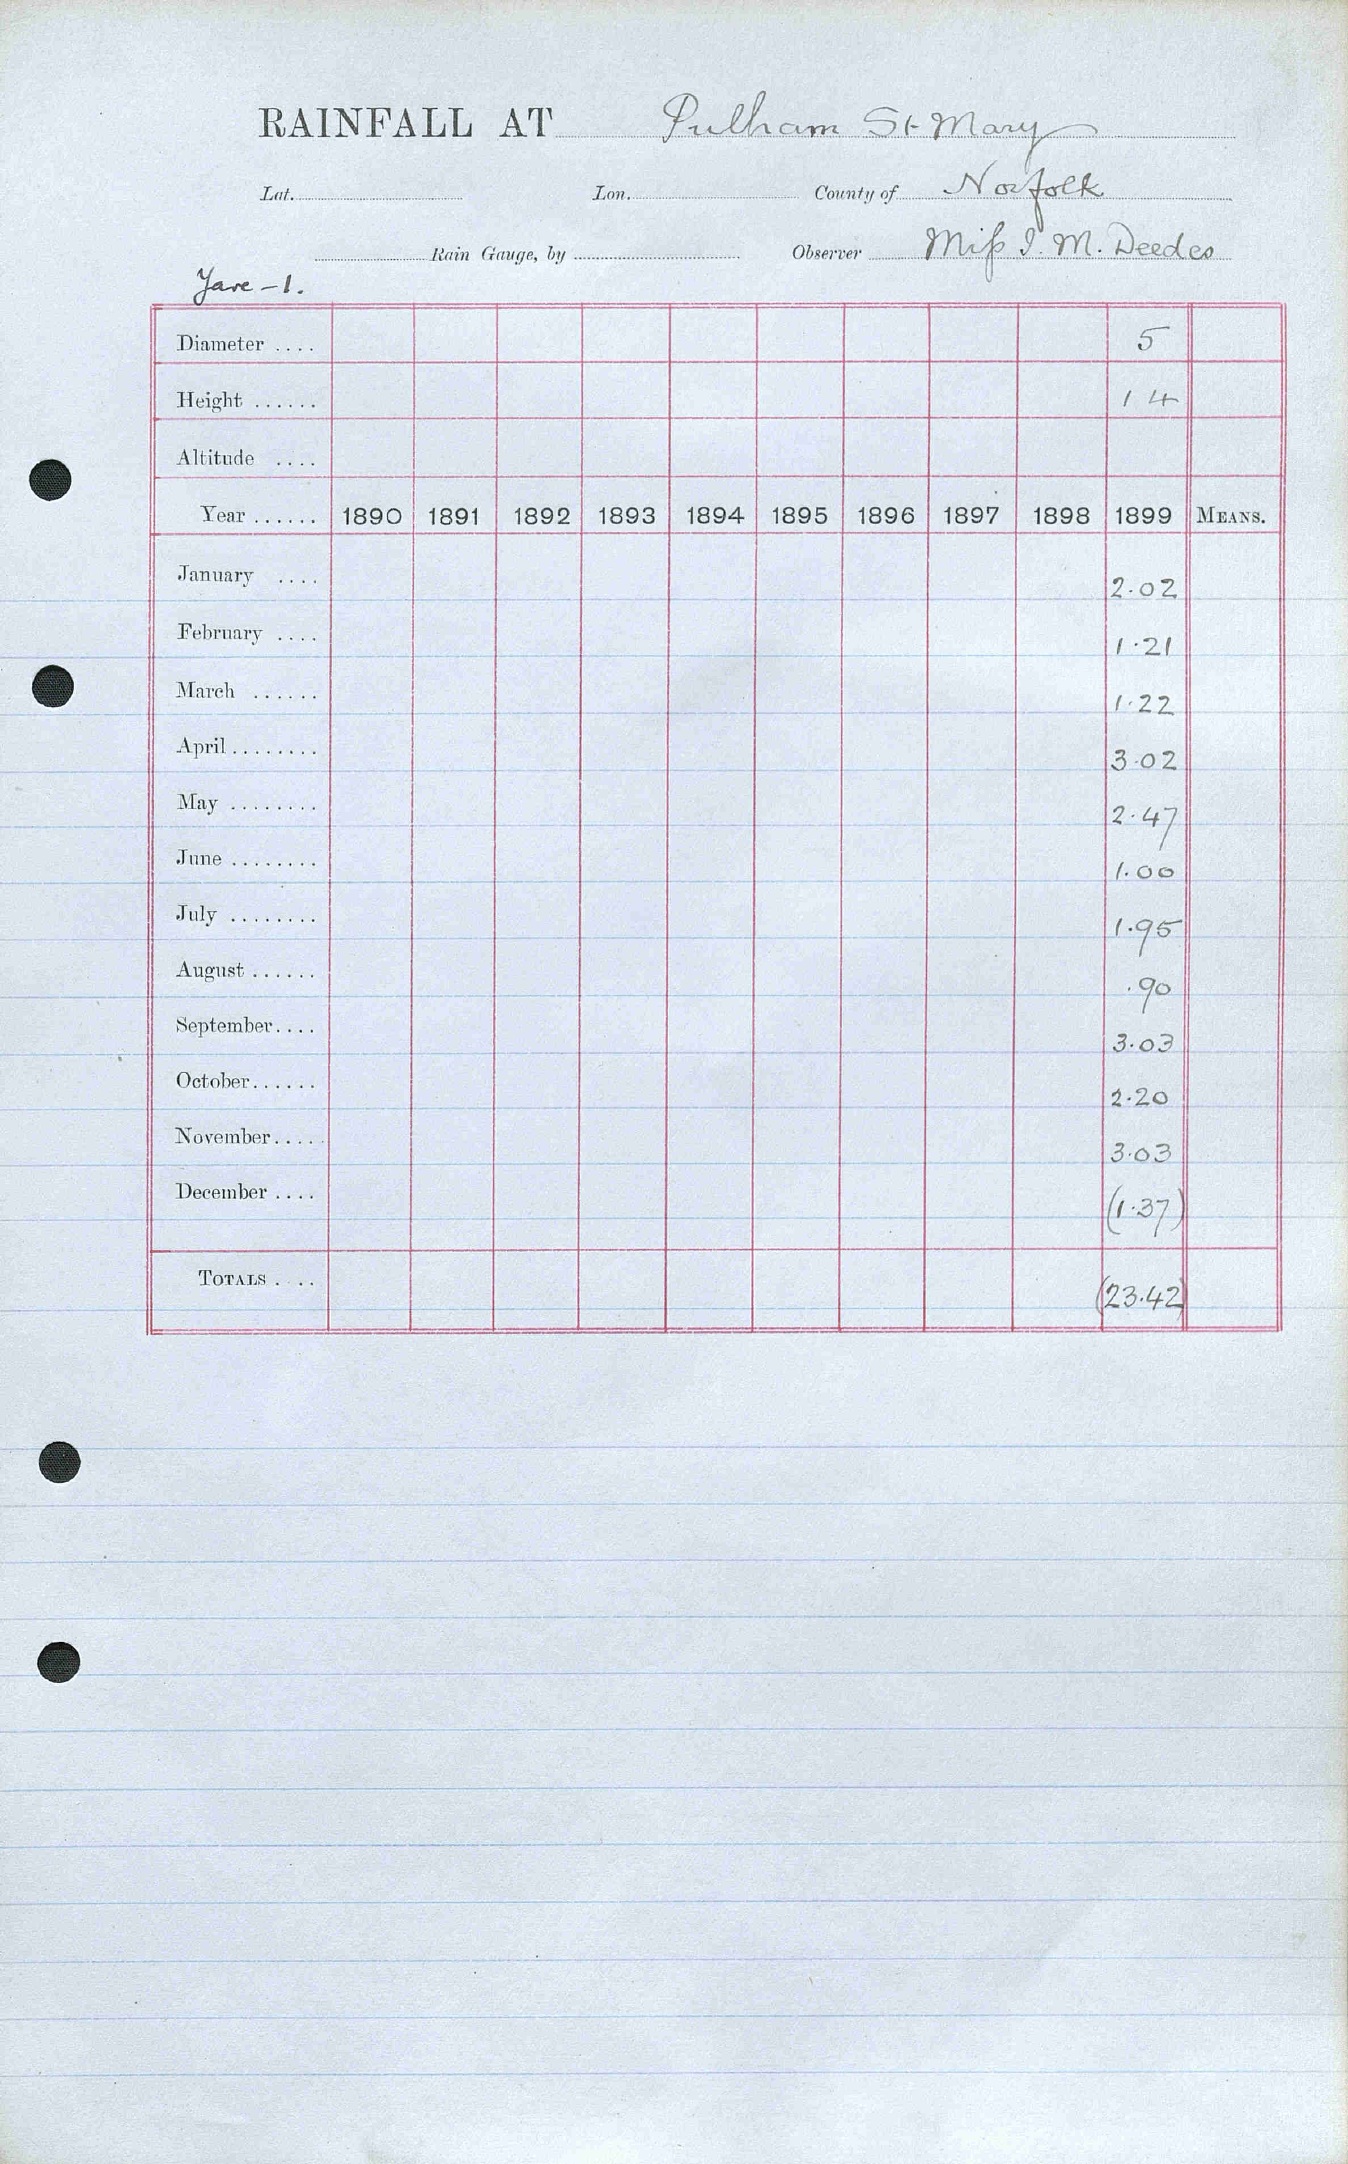 RAINFALL AT Pulham St Mary
Lat. Lon. County of Norfolk
Rain Gauge, by Observer Miss I. M. Deedes
Yare - 1.
Diameter .... 5
Height ...... 14
Altitude ....
Year ...... 1890 1891 1892 1893 1894 1895 1896 1897 1898 1899 MEANS.
January .... 2.02
February .... 1.21
March ...... 1.22
April ........ 3.02
May ........ 2.47
June ........ 1.00
July ........ 1.95
August ...... .90
September .... 3.03
October ...... 2.20
November .... 3.03
December .... (1.37)
TOTALS .... (23.42)